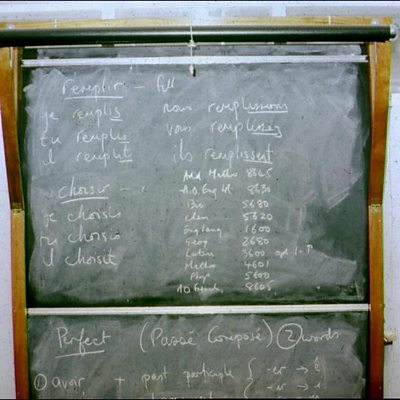 remplir – fill
je remplis nous remplissons
tu remplis vous remplissez
il remplit ils remplissent
Add Maths 8645
choisir – A.O. Eng Lit 8630
Bio 5680
je choisis Chem 5620
tu choisis Eng Lang 1600
Geog 2680
il choisit Latin 3600 opt 1-
Maths 4601
Phys 5600
AO French 8605
Perfect (Passé Composé) 2 words
1 avoir + past participle { -er → é
-ir → i